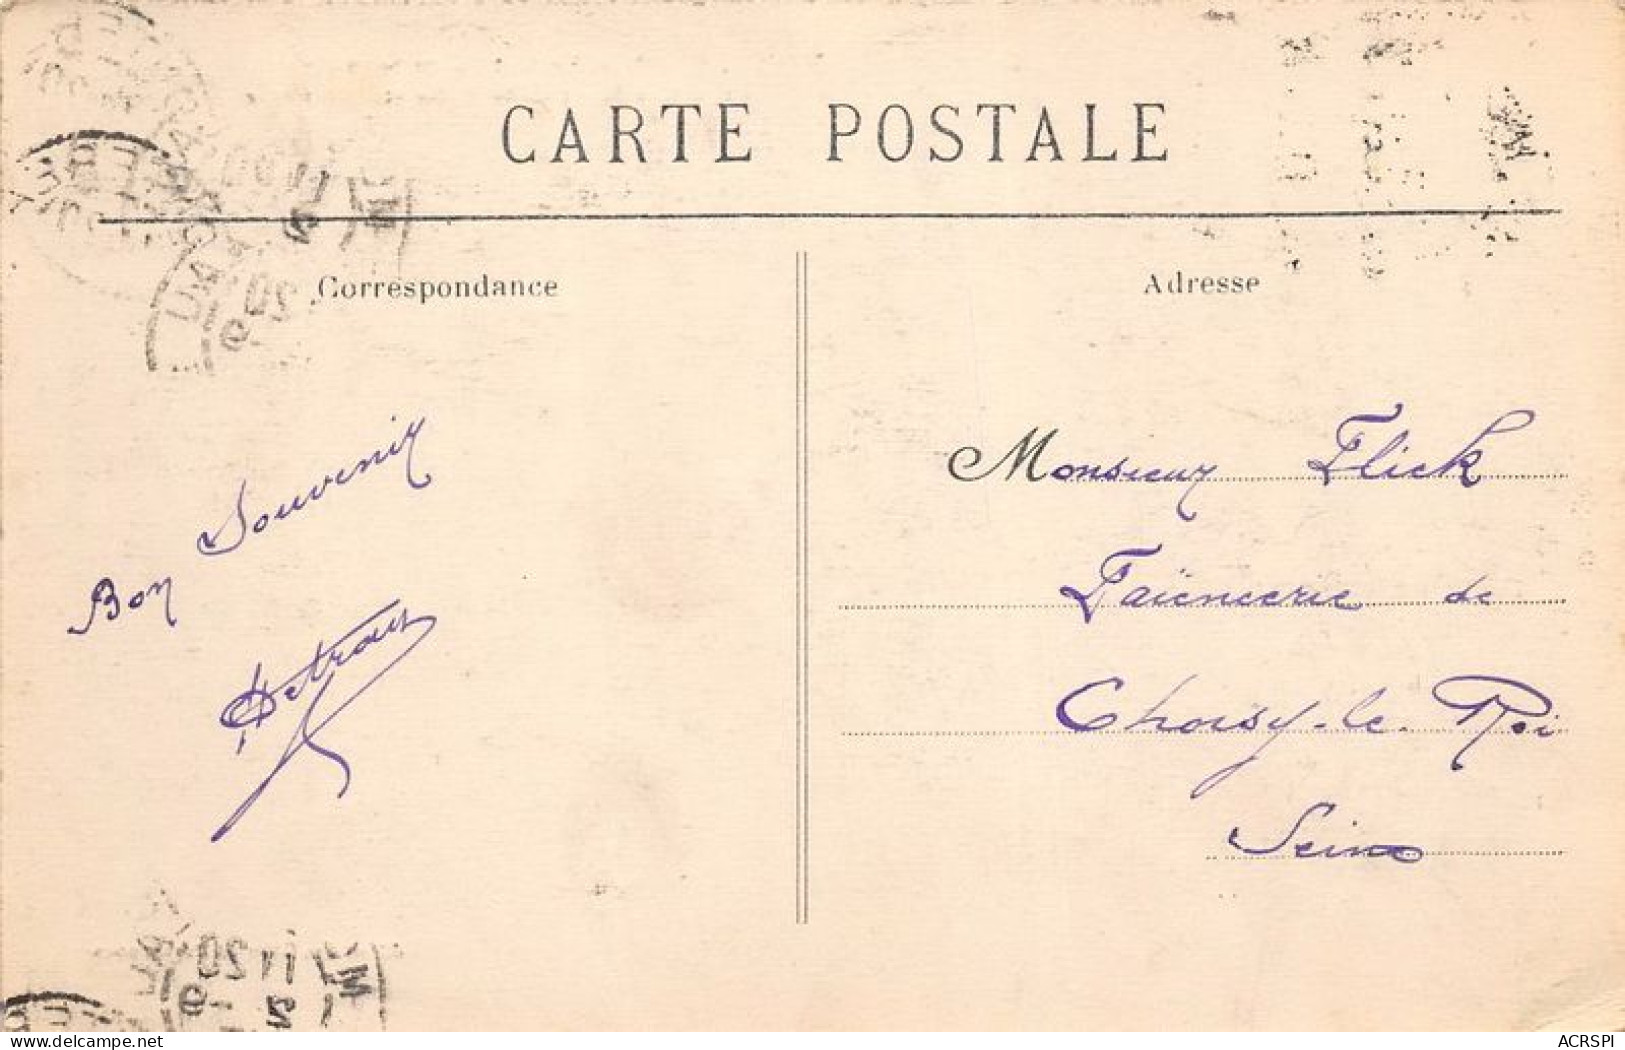 CARTE POSTALE
Correspondance
Adresse
Bon Souvenir
Monsieur Flick
Faïencerie de
Choisy-le-Roi
Seine
delcampe.net
ACRSPI